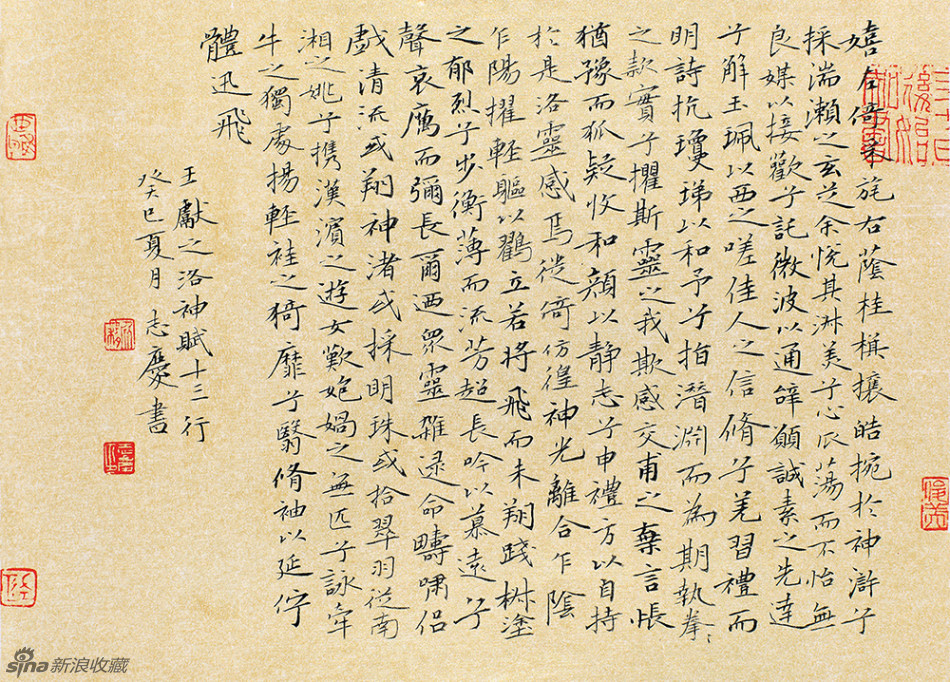 嬉右倚采旄右蔭桂棋攘皓捥於神滸兮
採湍瀨之玄芝余悅其淋美兮心㕟蕩而不怡無
良媒以接歡兮託微波以通辭願誠素之先達
兮解玉珮以要之嗟佳人之信脩兮羌習禮而
明詩抗瓊珶以和予兮指潛淵而為期執拳〻
之款實兮懼斯靈之我欺感交甫之棄言悵
猶豫而狐疑收和顏以靜志兮申禮方以自持
於是洛靈感焉徙倚仿徨神光離合乍陰
乍陽擢輕軀以鶴立若將飛而未翔踐椒塗
之郁烈兮步衡薄而流芳超長吟以慕遠兮
聲哀厲而彌長爾迺眾靈雜遝命疇嘯侶
戲清流或翔神渚或採明珠或拾翠羽從南
湘之姚兮攜漢濱之遊女歎炮媧之無匹兮詠牽
牛之獨處揚輕袿之猗靡兮翳脩袖以延佇
體迅飛
王獻之洛神賦十三行
癸巳夏月志慶書
sina新浪收藏